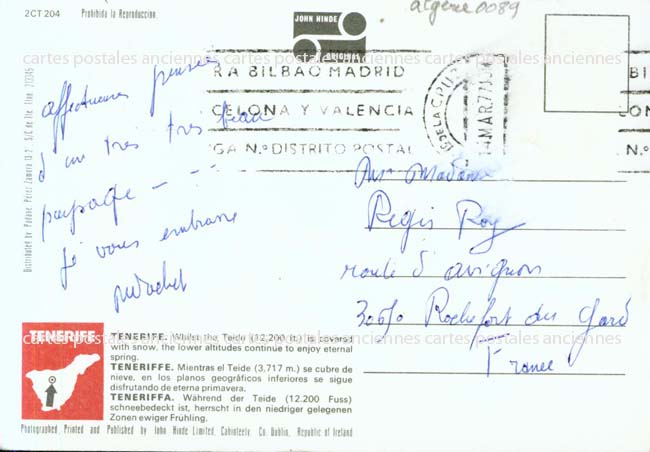 2CT 204
Prohibida la Reproduccion.
algerie0089
JOHN HINDE
cartes postales anciennes cartes postales anciennes cartes postales anciennes
RA BILBAO MADRID
CELONA Y VALENCIA
GA N.º DISTRITO POSTAL
14 MAR 77
BI
CON
N.º
affectueuses pensées
d'un très très beau
paysage - - -
je vous embrasse
Madame
Regis Roy
route d'avignon
30650 Rochefort du Gard
France
TENERIFE
TENERIFE. Whilst the Teide (12,200 ft.) is covered
with snow, the lower altitudes continue to enjoy eternal
spring.
TENERIFFE. Mientras el Teide (3,717 m.) se cubre de
nieve, en los planos geográficos inferiores se sigue
disfrutando de eterna primavera.
TENERIFFA. Während der Teide (12.200 Fuss)
schneebedeckt ist, herrscht in den niedriger gelegenen
Zonen ewiger Frühling.
cartes postales anciennes cartes postales anciennes cartes postales anciennes
Photographed, Printed and Published by John Hinde Limited, Cabinteely, Co. Dublin, Republic of Ireland